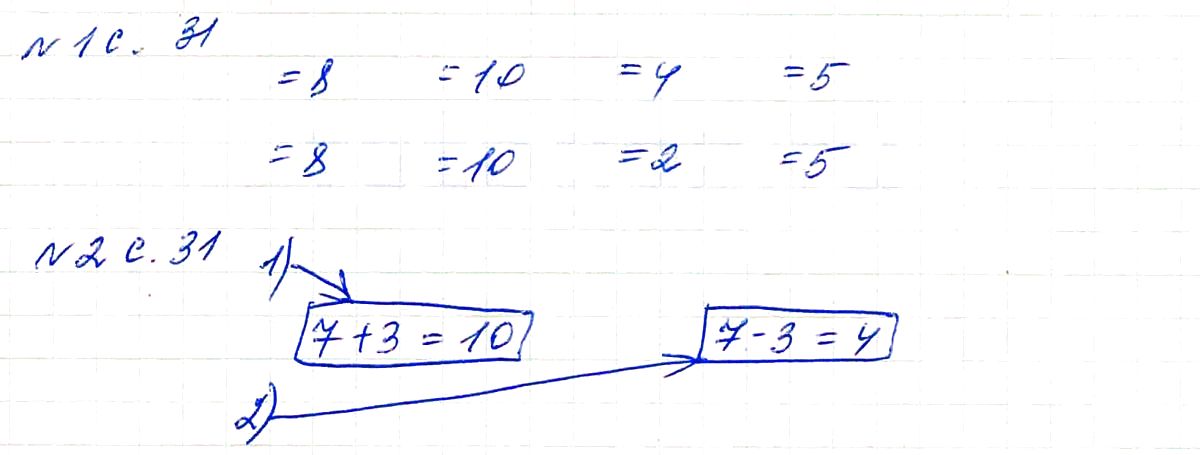 N 1 с. 31
= 8 = 10 = 4 = 5
= 8 = 10 = 2 = 5
N 2 с. 31 1)
7 + 3 = 10 7 - 3 = 4
2)